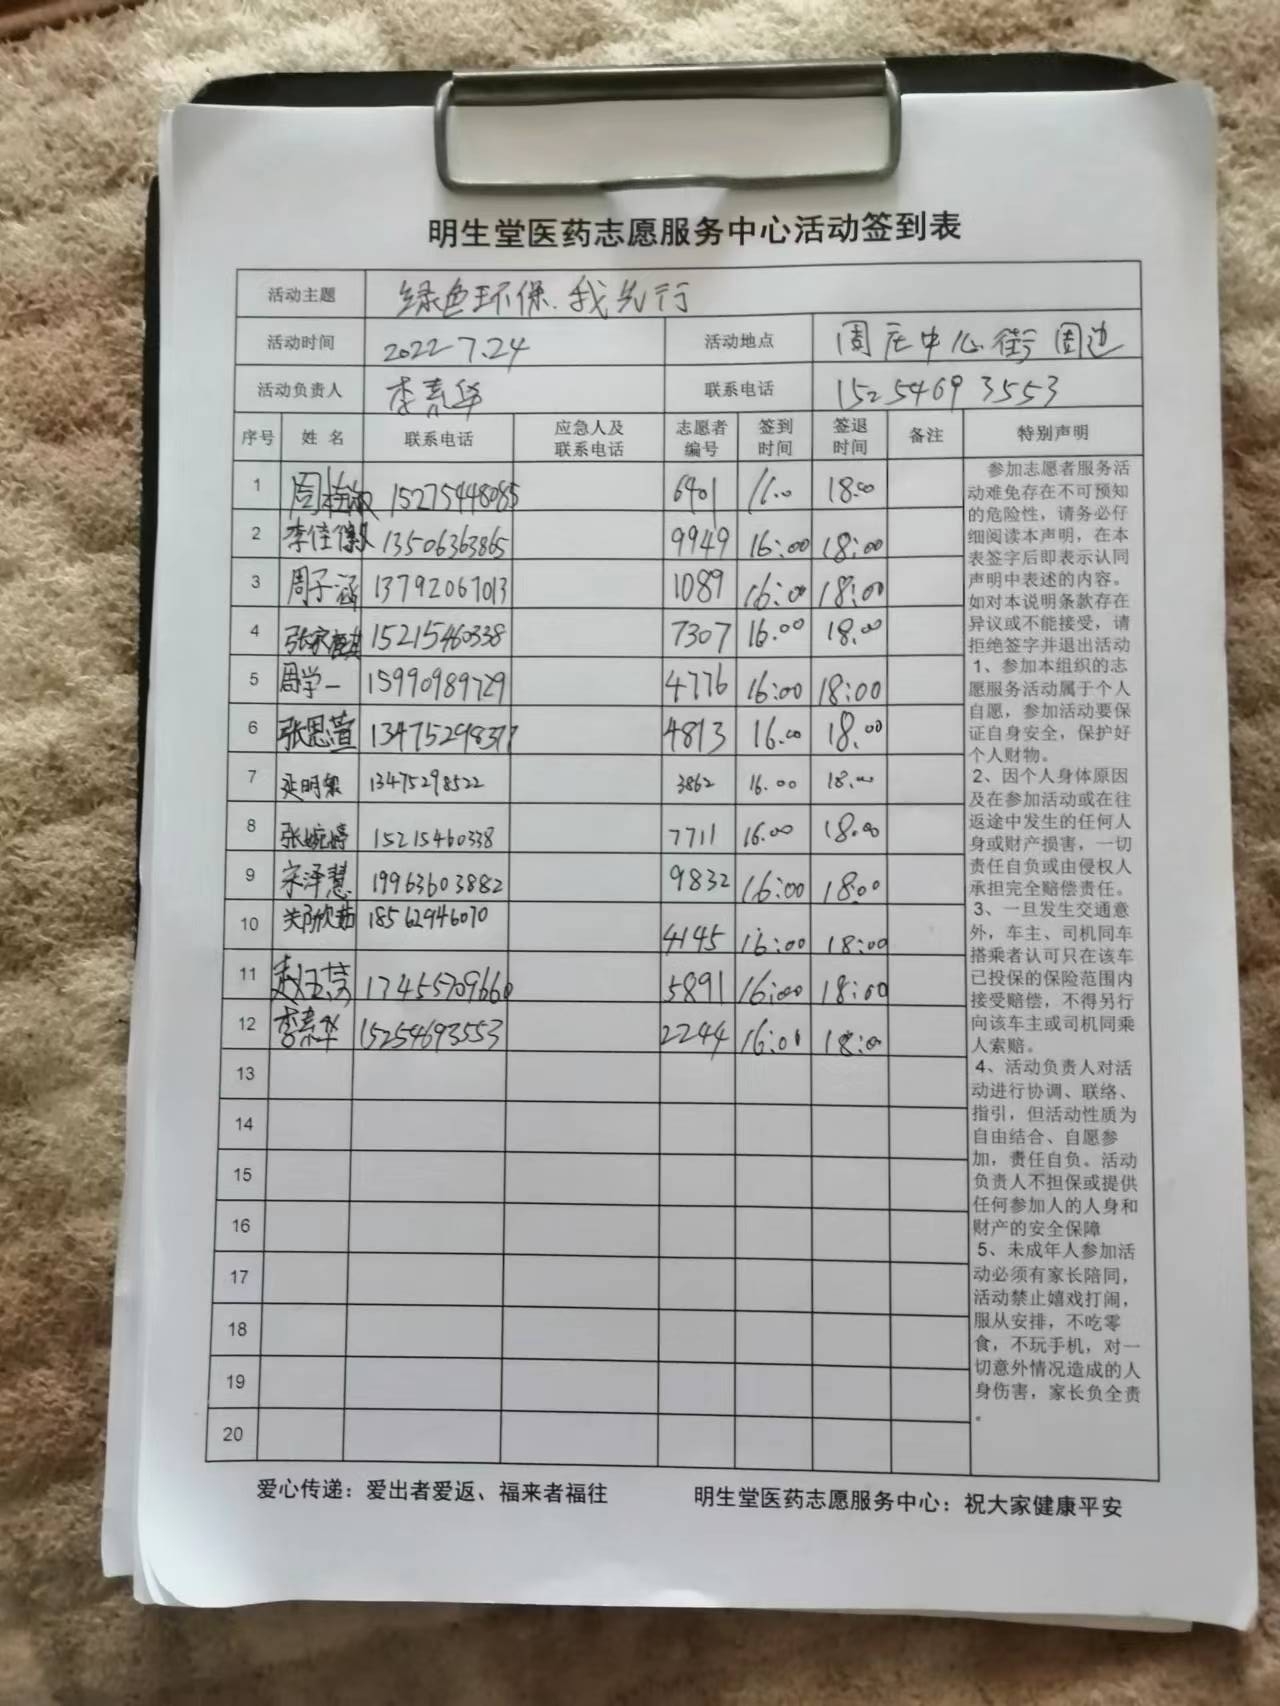 明生堂医药志愿服务中心活动签到表
活动主题 绿色环保.我先行
活动时间 2022 7.24 活动地点 周庄中心街周边
活动负责人 李素华 联系电话 15254693553
序号 姓名 联系电话 应急人及联系电话 志愿者编号 签到时间 签退时间 备注 特别声明
1 周 15275448085 6401 18.00
2 李佳 13506363865 9949 16:00 18:00
3 周子涵 13792067013 1089 16:00 18:00
4 张家 15215460338 7307 16.00 18.00
5 周学一 15990989729 4776 16:00 18:00
6 张恩萱 13475298377 4813 16.00 18.00
7 明 13475298522 3862 16.00 18.00
8 张婉婷 15215460338 7711 16.00 18.00
9 宋泽慧 19963603882 9832 16:00 18:00
10 欣茹 18562946070 4145 16:00 18:00
11 赵 13455709660 5891 16:00 18:00
12 李素华 15254693553 2244 16:01 18:00
13
14
15
16
17
18
19
20
参加志愿者服务活
动难免存在不可预知
的危险性，请务必仔
细阅读本声明，在本
表签字后即表示认同
声明中表述的内容。
如对本说明条款存在
异议或不能接受，请
拒绝签字并退出活动
1、参加本组织的志
愿服务活动属于个人
自愿，参加活动要保
证自身安全，保护好
个人财物。
2、因个人身体原因
及在参加活动或在往
返途中发生的任何人
身或财产损害，一切
责任自负或由侵权人
承担完全赔偿责任。
3、一旦发生交通意
外，车主、司机同车
搭乘者认可只在该车
已投保的保险范围内
接受赔偿，不得另行
向该车主或司机同乘
人索赔。
4、活动负责人对活
动进行协调、联络、
指引，但活动性质为
自由结合、自愿参
加，责任自负。活动
负责人不担保或提供
任何参加人的人身和
财产的安全保障
5、未成年人参加活
动必须有家长陪同，
活动禁止嬉戏打闹，
服从安排，不吃零
食，不玩手机，对一
切意外情况造成的人
身伤害，家长负全责
。
爱心传递：爱出者爱返、福来者福往 明生堂医药志愿服务中心：祝大家健康平安